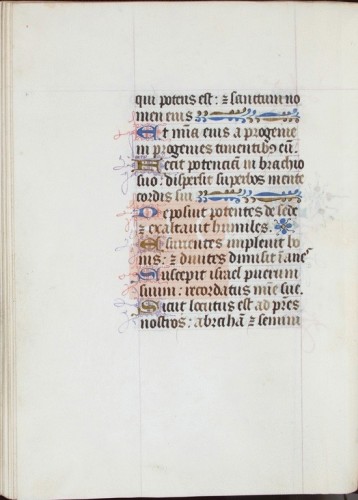 qui potens est: ⁊ sanctum no
men eius
Et mīa eius a progenie
in progenies timentibꝫ eū.
Fecit potenciam in brachio
suo: dispersit superbos mente
cordis sui
Deposuit potentes de sede
⁊ exaltauit humiles.
Esurientes impleuit bo
nis: ⁊ diuites dimisit ī anes
Suscepit israel puerum
suum: recordatus mīe sue.
Sicut locutus est ad pr̄es
nostros: abraham ⁊ semini